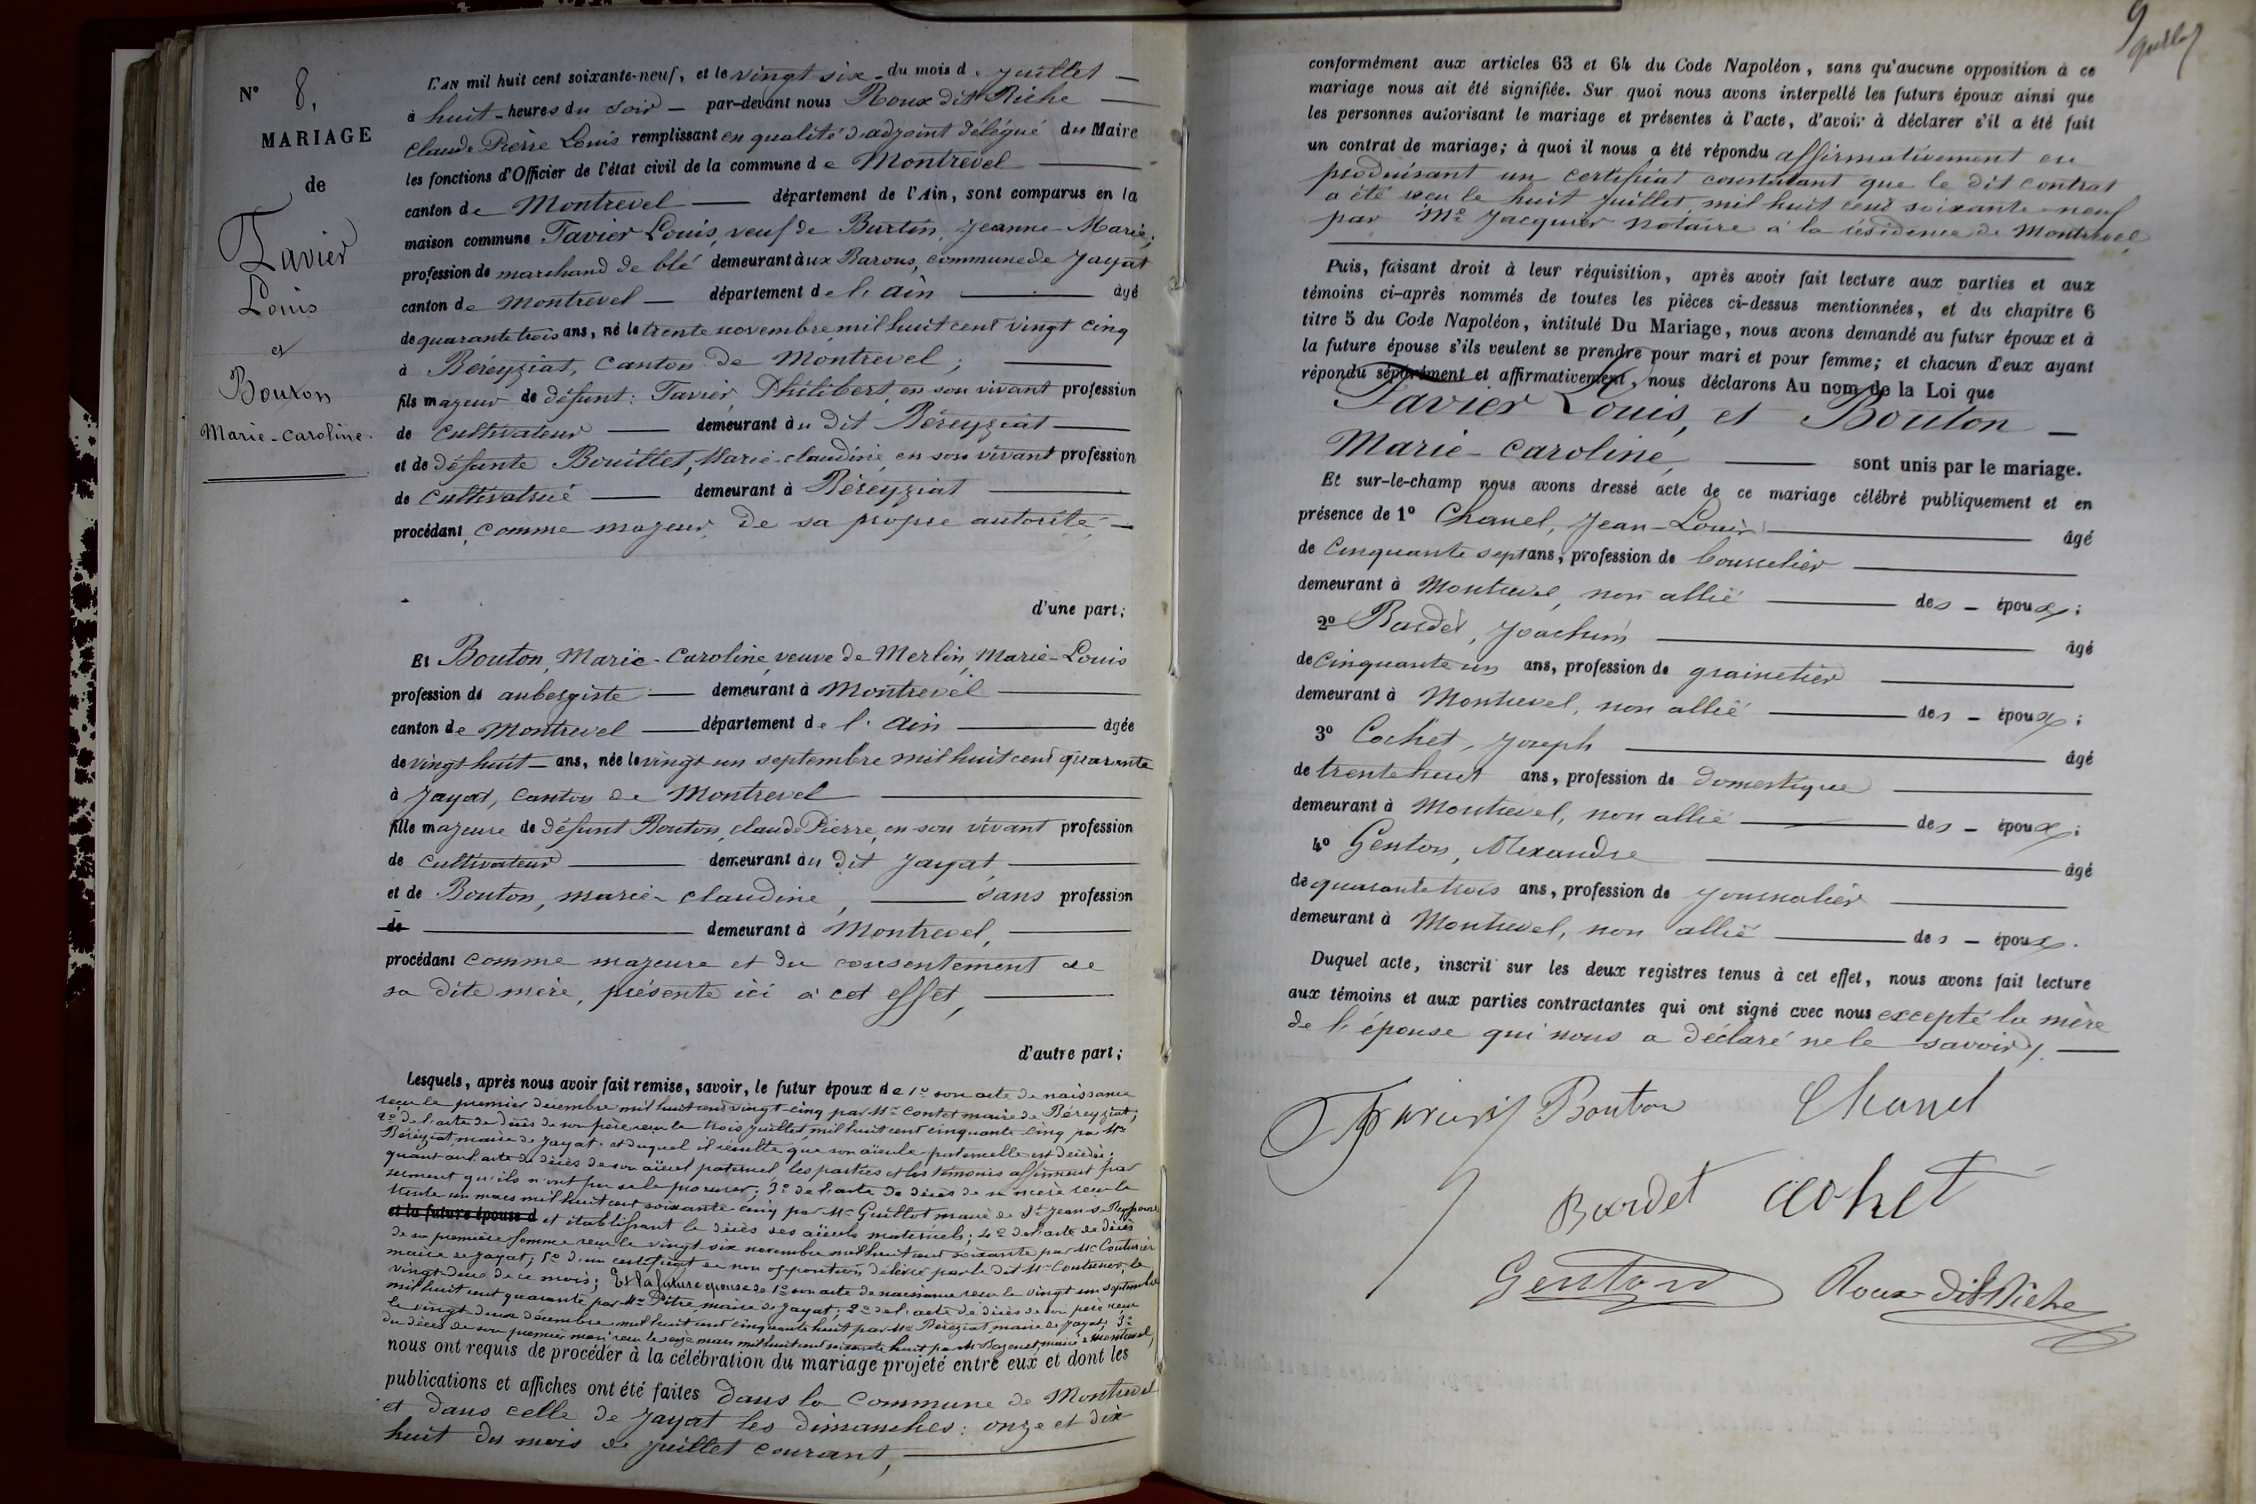 N° 8,
MARIAGE
de
Tavier
Louis
et
Bouton
Marie-Caroline.
L'AN mil huit cent soixante-neuf, et le vingt six du mois de juillet
à huit heures du soir par-devant nous Roux dit Riche
Claude Pierre Louis remplissant en qualité d'adjoint délégué du Maire
les fonctions d'Officier de l'état civil de la commune de Montrevel
canton de Montrevel département de l'Ain, sont comparus en la
maison commune Tavier Louis, veuf de Burtin, Jeanne-Marie,
profession de marchand de blé demeurant aux Barons, commune de Jayat
canton de Montrevel département de l'Ain âgé
de quarante trois ans, né le trente novembre mil huit cent vingt cinq
à Béréyziat, canton de Montrevel;
fils majeur de défunt: Tavier, Philibert, en son vivant profession
de cultivateur demeurant au dit Béreyziat
et de défunte Bouillet, Marie-claudine, en son vivant profession
de cultivatrice demeurant à Béreyziat
procédant comme majeur, de sa propre autorité,
d'une part;
Et Bouton, Marie-Caroline, veuve de Merlin, Marie-Louis
profession de aubergiste demeurant à Montrevel
canton de Montrevel département de l'Ain âgée
de vingt huit ans, née le vingt un septembre mil huit cent quarante
à Jayat, canton de Montrevel
fille majeure de défunt Bouton, claude Pierre, en son vivant profession
de cultivateur demeurant au dit Jayat,
et de Bouton, marie-claudine, sans profession
de demeurant à Montrevel,
procédant comme majeure et du consentement de
sa dite mère, présente ici à cet effet,
d'autre part;
Lesquels, après nous avoir fait remise, savoir, le futur époux de 1° son acte de naissance
reçu le premier décembre mil huit cent vingt-cinq par Mr Contet maire de Béreyziat;
2° de l'acte de décès de son père reçu le trois juillet mil huit cent cinquante cinq par Mr
Béréziat maire de Jayat et duquel il résulte que son aïeule paternelle est décédée;
quant à l'acte de décès de son aïeul paternel les parties et les témoins affirment par
serment qu'ils n'ont pu se le procurer; 3° de l'acte de décès de sa mère reçu le
trente un mars mil huit cent soixante cinq par Mr Guillot maire de St Jean-s-Reyssouze
et la future épouse d et établissant le décès des aïeuls maternels; 4° de l'acte de décès
de sa première femme reçu le vingt-six novembre mil huit cent soixante par Mr Couturier
maire de Jayat; 5° d'un certificat de non opposition délivré par le dit Mr Couturier le
vingt-deux de ce mois; Et la future épouse de 1° son acte de naissance reçu le vingt un septembre
mil huit cent quarante par Mr Pitre maire de Jayat; 2° de l'acte de décès de son père reçu
le vingt deux décembre mil huit cent cinquante huit par Mr Béréziat maire de Jayat; 3°
du décès de son premier mari reçu le seize mars mil huit cent soixante huit par Mr maire de Montrevel,
nous ont requis de procéder à la célébration du mariage projeté entre eux et dont les
publications et affiches ont été faites dans la commune de Montrevel
et dans celle de Jayat les dimanches: onze et dix
huit du mois de juillet courant,
9
conformément aux articles 63 et 64 du Code Napoléon, sans qu'aucune opposition à ce
mariage nous ait été signifiée. Sur quoi nous avons interpellé les futurs époux ainsi que
les personnes autorisant le mariage et présentes à l'acte, d'avoir à déclarer s'il a été fait
un contrat de mariage; à quoi il nous a été répondu affirmativement en
produisant un certificat constatant que le dit contrat
a été reçu le huit juillet mil huit cent soixante-neuf
par Me Jacquier notaire à la résidence de Montrevel
Puis, faisant droit à leur réquisition, après avoir fait lecture aux parties et aux
témoins ci-après nommés de toutes les pièces ci-dessus mentionnées, et du chapitre 6
titre 5 du Code Napoléon, intitulé Du Mariage, nous avons demandé au futur époux et à
la future épouse s'ils veulent se prendre pour mari et pour femme; et chacun d'eux ayant
répondu séparément et affirmativement, nous déclarons Au nom de la Loi que
Tavier Louis, et Bouton
Marie-Caroline, sont unis par le mariage.
Et sur-le-champ nous avons dressé acte de ce mariage célébré publiquement et en
présence de 1° Chanel, Jean-Louis âgé
de cinquante sept ans, profession de bourrelier
demeurant à Montrevel, non allié des époux;
2° Bardet, Joachim âgé
de cinquante un ans, profession de grainetier
demeurant à Montrevel, non allié des époux;
3° Cochet, Joseph âgé
de trente huit ans, profession de domestique
demeurant à Montrevel, non allié des époux;
4° Genton, Alexandre âgé
de quarante trois ans, profession de journalier
demeurant à Montrevel, non allié des époux.
Duquel acte, inscrit sur les deux registres tenus à cet effet, nous avons fait lecture
aux témoins et aux parties contractantes qui ont signé avec nous excepté la mère
de l'épouse qui nous a déclaré ne le savoir.
Tavier Bouton Chanel
Bardet Cochet
Genton Roux dit Riche